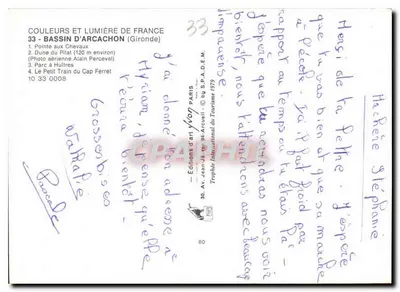 COULEURS ET LUMIÈRE DE FRANCE
33 - BASSIN D'ARCACHON (Gironde)
1. Pointe aux Chevaux
2. Dune du Pilat (120 m environ)
(Photo aérienne Alain Perceval)
3. Parc à Huîtres
4. Le Petit Train du Cap Ferret
10 33 0008
33
J'ai donné ton adresse à
Myriam, je pense qu'elle
t'écrira bientôt.
Grosses bises
Nathalie
Pascale
Éditions d'art yvon PARIS
30, Av. Jean-Jaurès 94-Arcueil - © by S.P.A.D.E.M.
Trophée International du Tourisme 1979
80
Merci de ta lettre. J'espère
que tu vas bien et que ça marche
à l'école. Ici il fait froid par
rapport au temps où tu étais là.
J'espère que tu viendras nous voir
bientôt, nous t'attendrons avec beaucoup
d'impatience.
Stéphanie